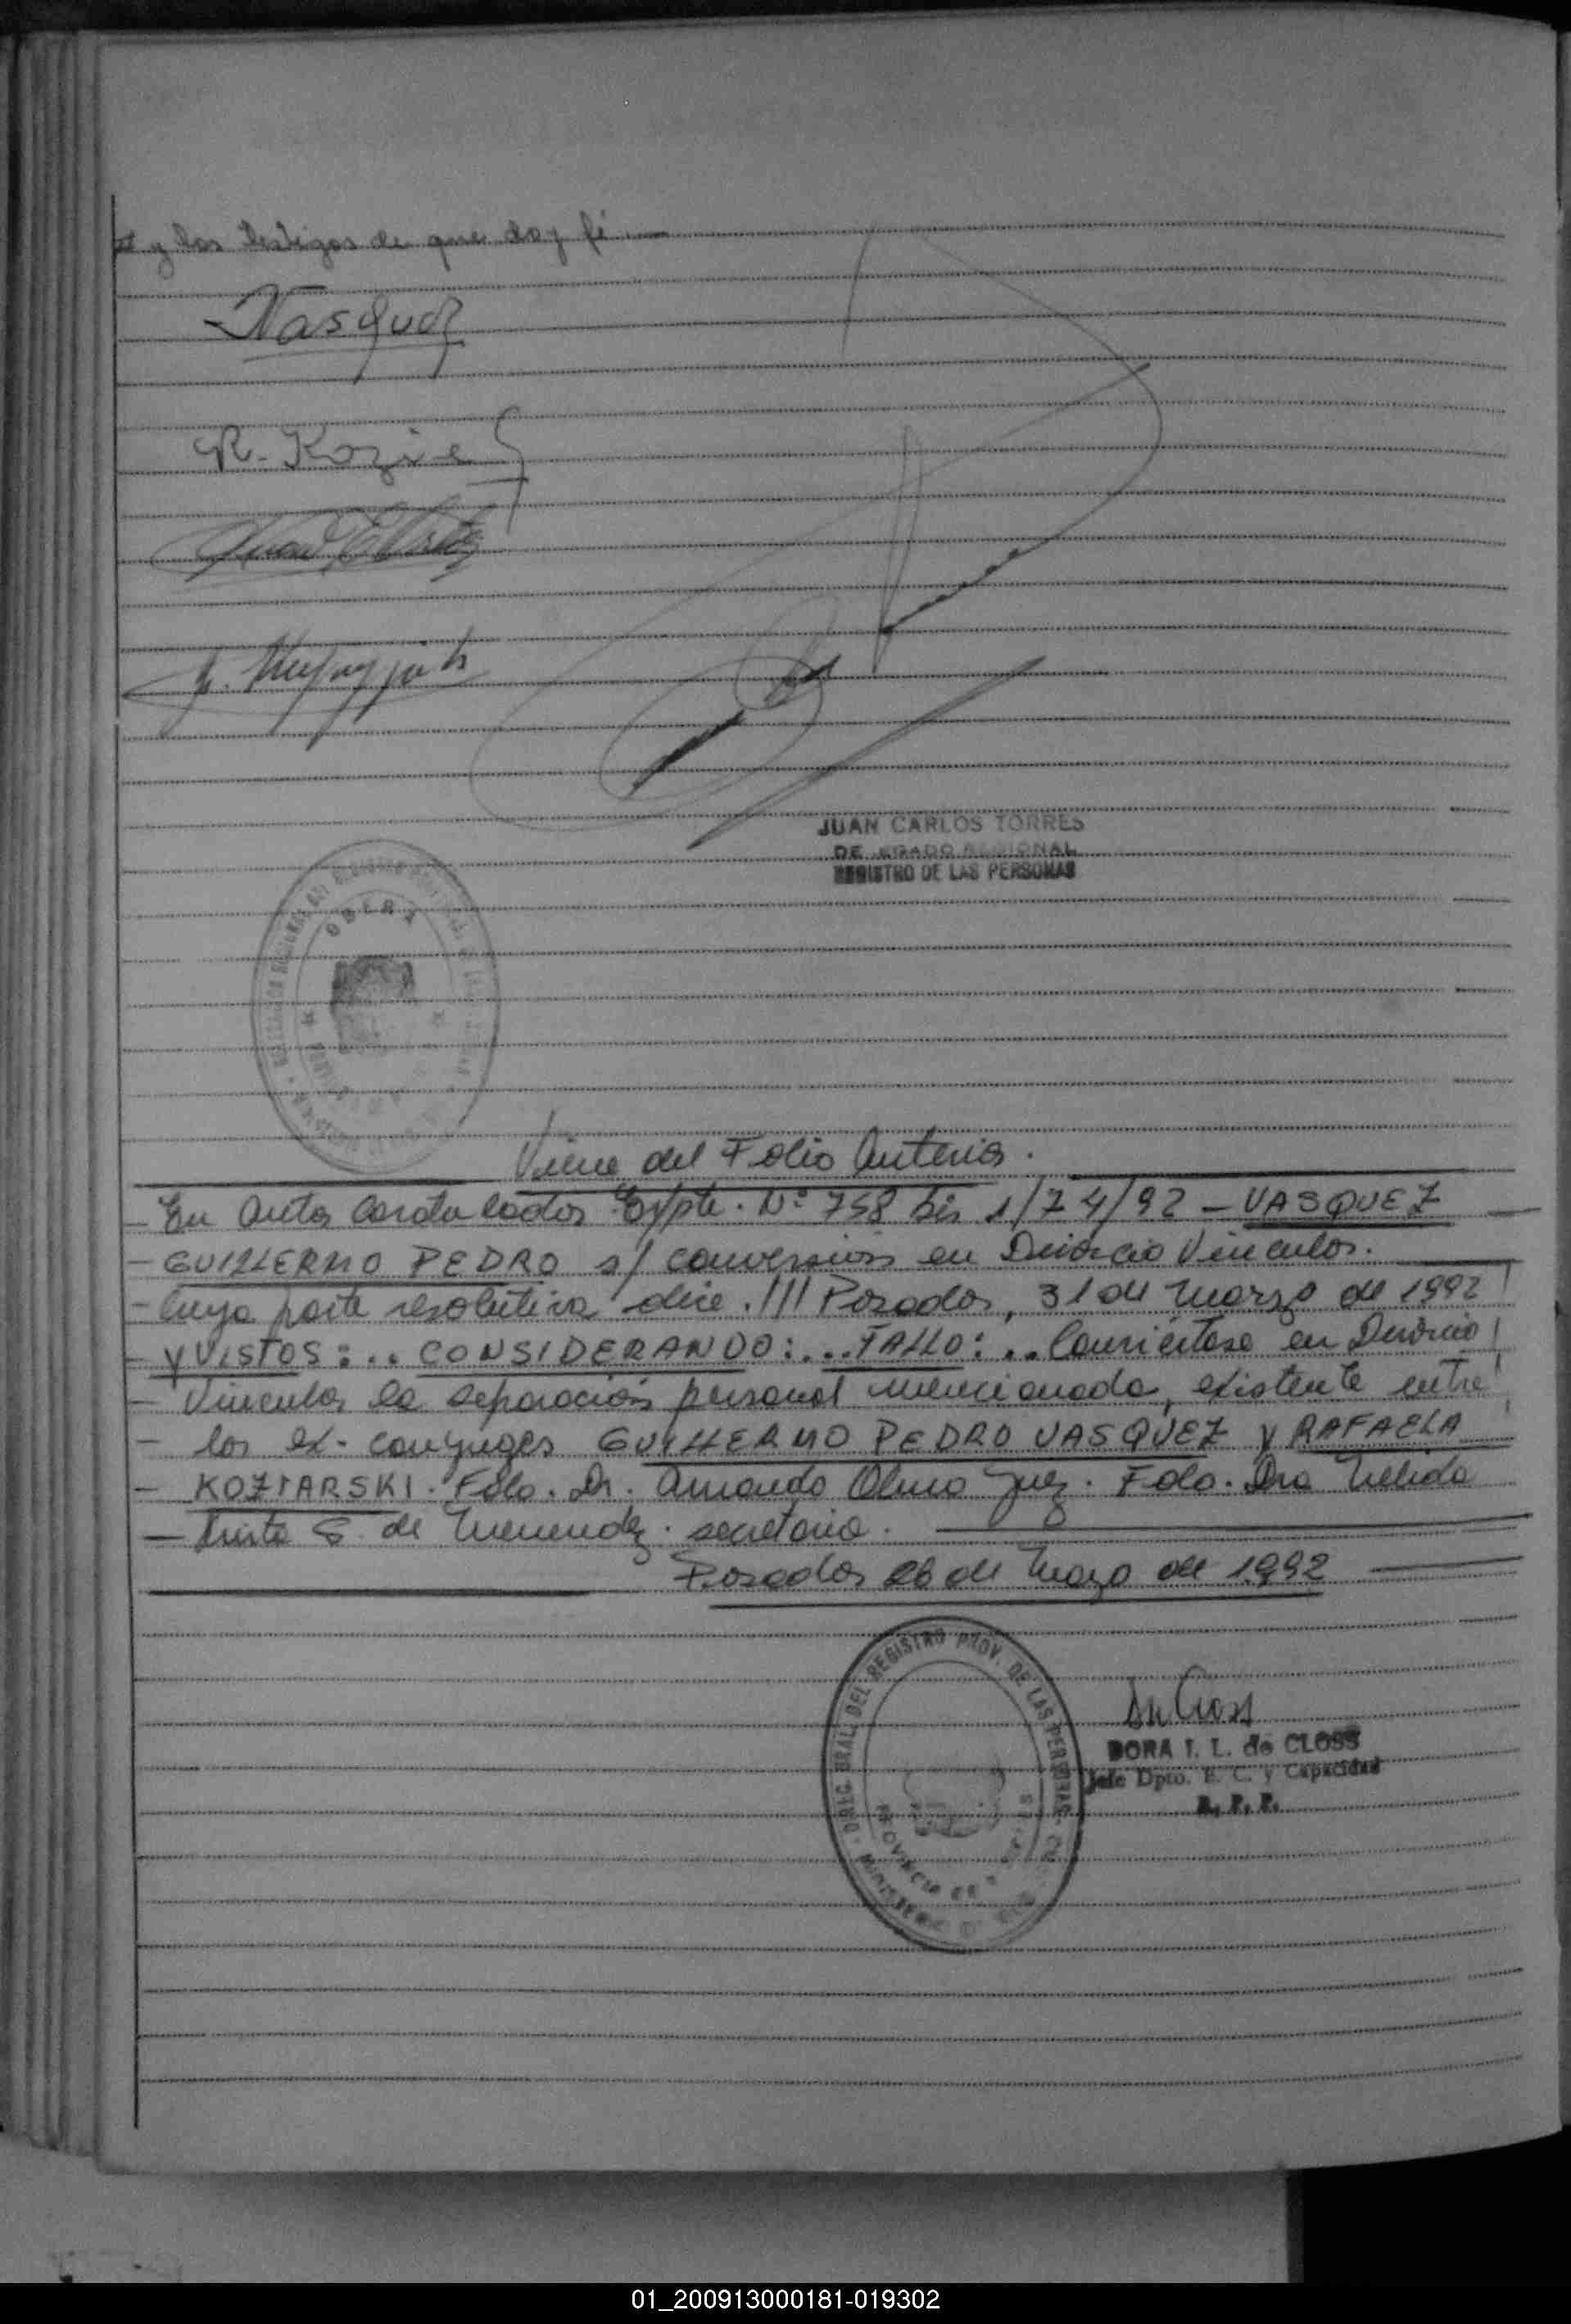 y los testigos de que doy fé.
Vasquez
R. Kozia
JUAN CARLOS TORRES
DELEGADO REGIONAL
REGISTRO DE LAS PERSONAS
OBERA
Viene del Folio Anterior.
En autos caratulados Expte. Nº 758 bis 1/74/92 - VASQUEZ
GUILLERMO PEDRO s/ conversión en Divorcio Vincular.
cuya parte resolutiva dice. /// Posadas, 31 de marzo de 1992
Y VISTOS: .. CONSIDERANDO: ... FALLO: .. Conviértase en Divorcio
Vincular la separación personal mencionada, existente entre
los ex-conyuges GUILLERMO PEDRO VASQUEZ y RAFAELA
KOZIARSKI. Fdo. Dr. Amando Olmo Juez. Fdo. Dra Nelida
S. de Menendez. secretaria.
Posadas 26 de Mayo de 1992
DIREC. GRAL. DEL REGISTRO PROV. DE LAS PERSONAS
PROVINCIA DE
DORA I. L. de CLOSS
Jefe Dpto. E. C. y Capacidad
R. P. P.
01_200913000181-019302